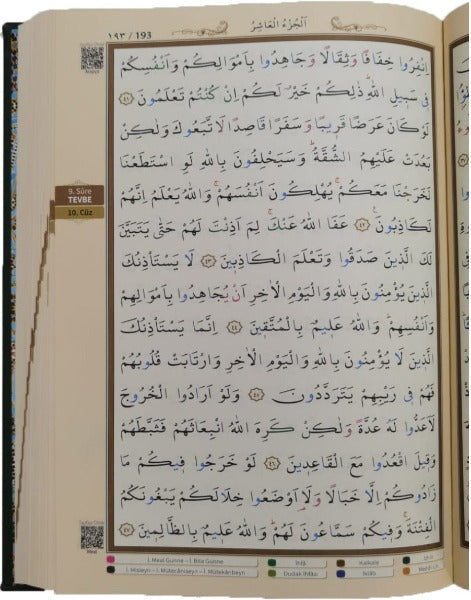 ١٩٣ / 193
اَلْجُزْءُ الْعَاشِرُ
اِنْفِرُوا خِفَافًا وَثِقَالًا وَجَاهِدُوا بِاَمْوَالِكُمْ وَاَنْفُسِكُمْ
فٖي سَبٖيلِ اللّٰهِ ذٰلِكُمْ خَيْرٌ لَكُمْ اِنْ كُنْتُمْ تَعْلَمُونَ ٤١
لَوْ كَانَ عَرَضًا قَرٖيبًا وَسَفَرًا قَاصِدًا لَاتَّبَعُوكَ وَلٰكِنْ
بَعُدَتْ عَلَيْهِمُ الشُّقَّةُ وَسَيَحْلِفُونَ بِاللّٰهِ لَوِ اسْتَطَعْنَا
لَخَرَجْنَا مَعَكُمْ يُهْلِكُونَ اَنْفُسَهُمْ وَاللّٰهُ يَعْلَمُ اِنَّهُمْ
لَكَاذِبُونَ ٤٢ عَفَا اللّٰهُ عَنْكَ لِمَ اَذِنْتَ لَهُمْ حَتّٰى يَتَبَيَّنَ
لَكَ الَّذٖينَ صَدَقُوا وَتَعْلَمَ الْكَاذِبٖينَ ٤٣ لَا يَسْتَأْذِنُكَ
الَّذٖينَ يُؤْمِنُونَ بِاللّٰهِ وَالْيَوْمِ الْاٰخِرِ اَنْ يُجَاهِدُوا بِاَمْوَالِهِمْ
وَاَنْفُسِهِمْ وَاللّٰهُ عَلٖيمٌ بِالْمُتَّقٖينَ ٤٤ اِنَّمَا يَسْتَأْذِنُكَ
الَّذٖينَ لَا يُؤْمِنُونَ بِاللّٰهِ وَالْيَوْمِ الْاٰخِرِ وَارْتَابَتْ قُلُوبُهُمْ
فَهُمْ فٖي رَيْبِهِمْ يَتَرَدَّدُونَ ٤٥ وَلَوْ اَرَادُوا الْخُرُوجَ
لَاَعَدُّوا لَهُ عُدَّةً وَلٰكِنْ كَرِهَ اللّٰهُ انْبِعَاثَهُمْ فَثَبَّطَهُمْ
وَقٖيلَ اقْعُدُوا مَعَ الْقَاعِدٖينَ ٤٦ لَوْ خَرَجُوا فٖيكُمْ مَا
زَادُوكُمْ اِلَّا خَبَالًا وَلَاَوْضَعُوا خِلَالَكُمْ يَبْغُونَكُمُ
الْفِتْنَةَ وَفٖيكُمْ سَمَّاعُونَ لَهُمْ وَاللّٰهُ عَلٖيمٌ بِالظَّالِمٖينَ ٤٧
9. Sûre
TEVBE
10. Cüz
Meal
İ. Meal Gunne - İ. Bila Gunne
İhfâ
Kalkale
İ. Misleyn - İ. Mütecâniseyn - İ. Mütekâribeyn
Dudak İhfâsı
İklâb